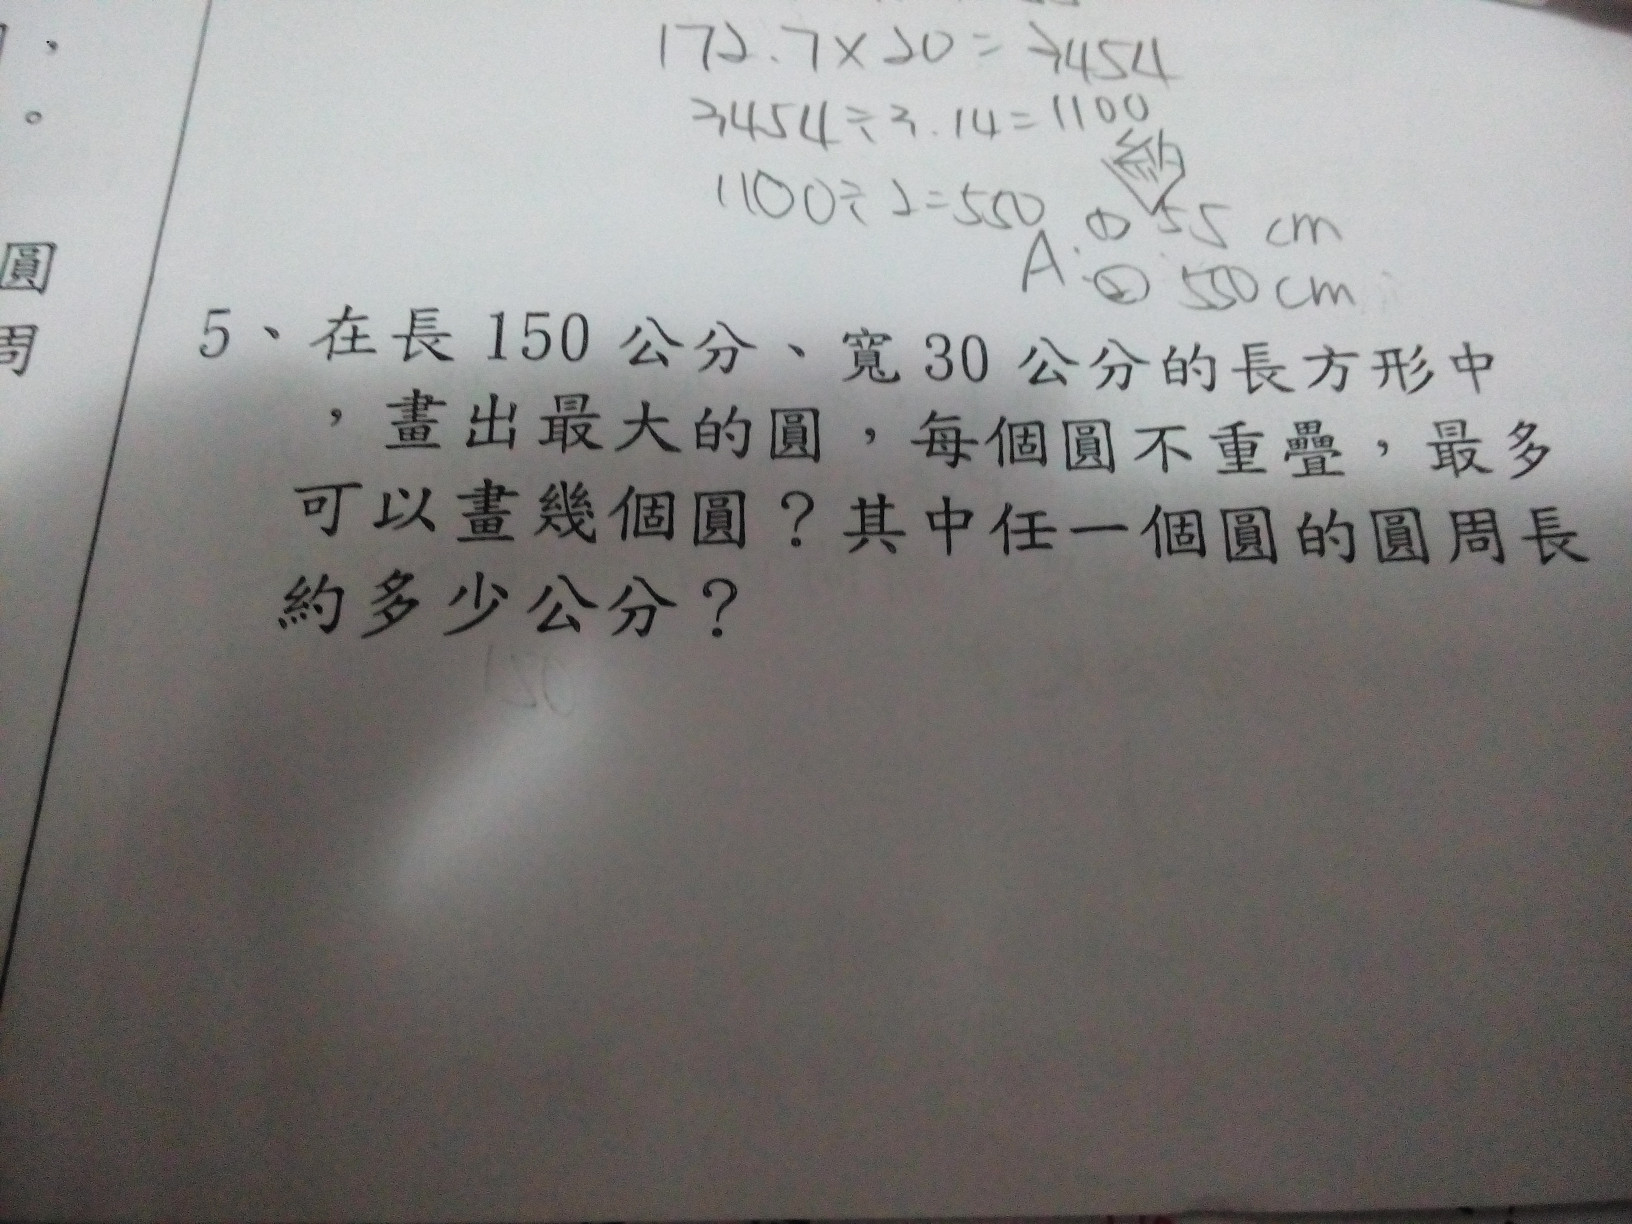 ，
。
圓
周
172.7×20=3454
3454÷3.14=1100
1100÷2=550
約
A:① 55 cm
② 550cm
5、在長150公分、寬30公分的長方形中
，畫出最大的圓，每個圓不重疊，最多
可以畫幾個圓？其中任一個圓的圓周長
約多少公分？
150